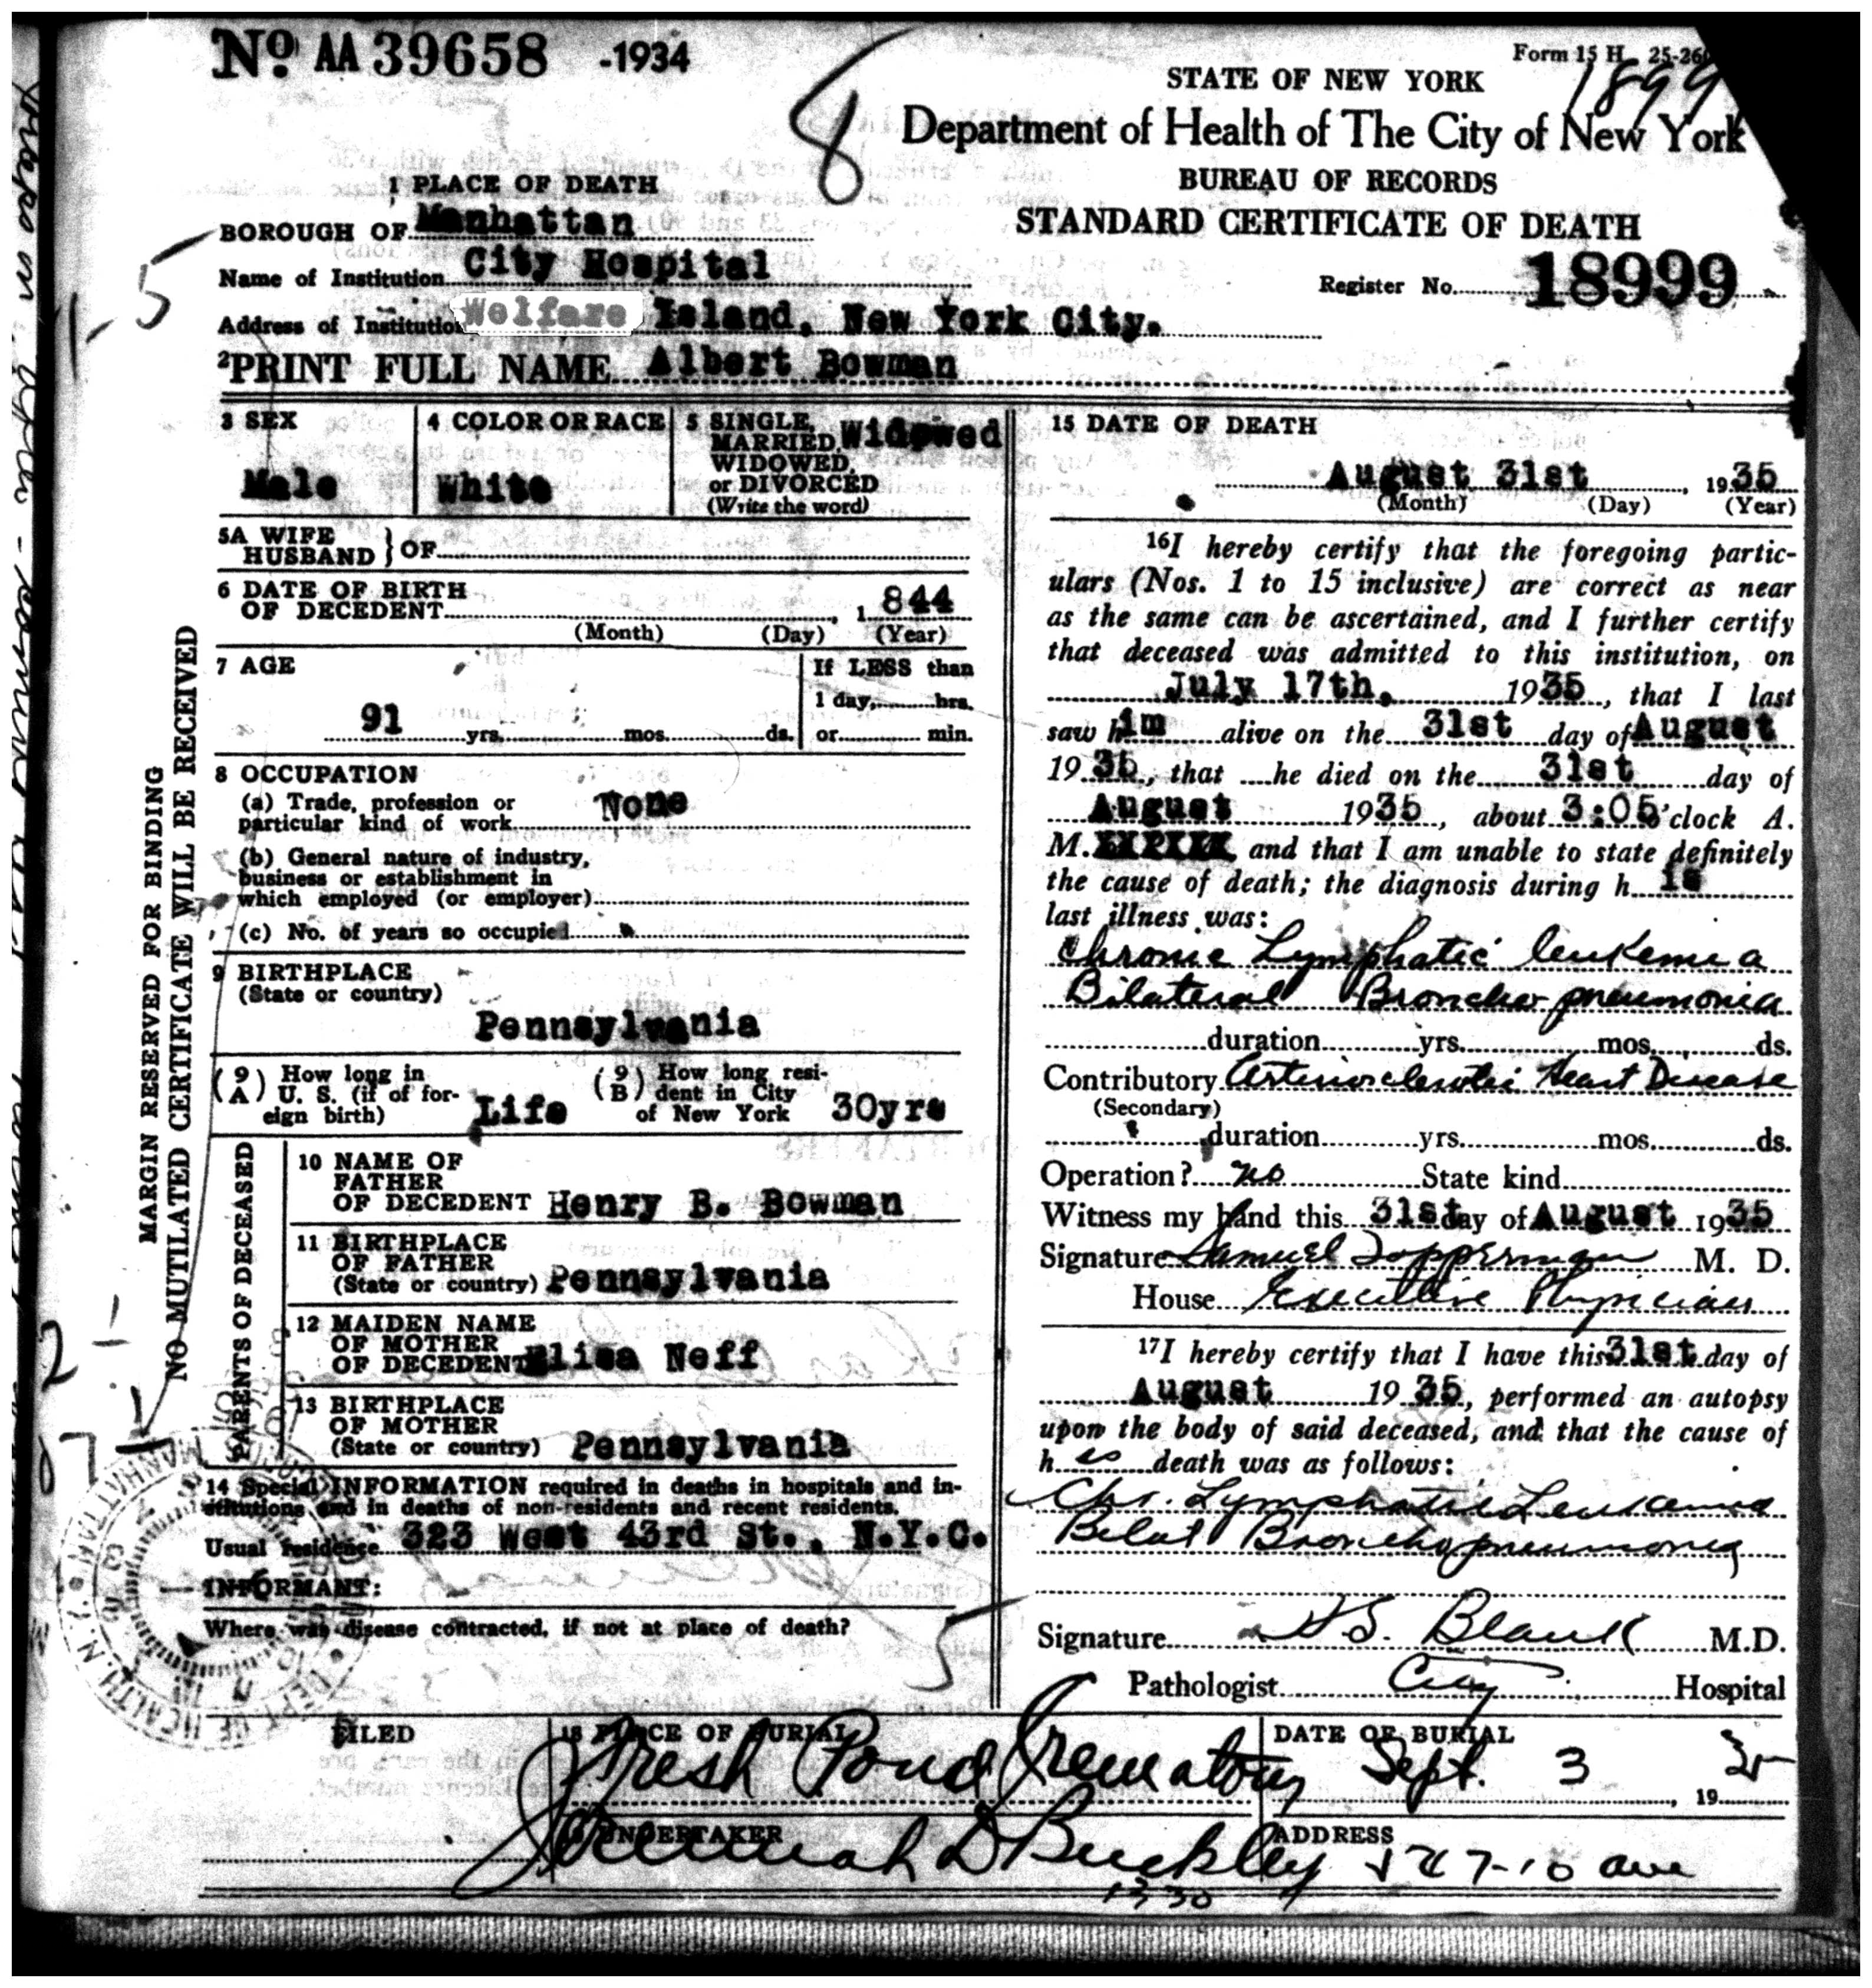 No. AA 39658 -1934
Form 15 H 25-26
1899
8
STATE OF NEW YORK
Department of Health of The City of New York
BUREAU OF RECORDS
STANDARD CERTIFICATE OF DEATH
Register No. 18999
1 PLACE OF DEATH
BOROUGH OF Manhattan
Name of Institution City Hospital
Address of Institution Welfare Island, New York City.
2 PRINT FULL NAME Albert Bowman
1-5
MARGIN RESERVED FOR BINDING
NO MUTILATED CERTIFICATE WILL BE RECEIVED
3 SEX
Male
4 COLOR OR RACE
White
5 SINGLE, MARRIED, WIDOWED, or DIVORCED (Write the word) Widowed
5A WIFE HUSBAND } OF
6 DATE OF BIRTH
OF DECEDENT , 1 844
(Month) (Day) (Year)
7 AGE
91 yrs. mos. ds.
If LESS than
1 day, hrs.
or min.
8 OCCUPATION
(a) Trade, profession or
particular kind of work None
(b) General nature of industry,
business or establishment in
which employed (or employer)
(c) No. of years so occupied
9 BIRTHPLACE
(State or country)
Pennsylvania
(9 A) How long in U. S. (if of foreign birth) Life
(9 B) How long resident in City of New York 30yrs
PARENTS OF DECEASED
10 NAME OF
FATHER
OF DECEDENT Henry B. Bowman
11 BIRTHPLACE
OF FATHER
(State or country) Pennsylvania
12 MAIDEN NAME
OF MOTHER
OF DECEDENT Elisa Neff
13 BIRTHPLACE
OF MOTHER
(State or country) Pennsylvania
14 Special INFORMATION required in deaths in hospitals and in-
stitutions and in deaths of non-residents and recent residents.
Usual residence 323 West 43rd St., N.Y.C.
INFORMANT:
Where was disease contracted, if not at place of death?
15 DATE OF DEATH
August 31st , 1935
(Month) (Day) (Year)
16 I hereby certify that the foregoing partic-
ulars (Nos. 1 to 15 inclusive) are correct as near
as the same can be ascertained, and I further certify
that deceased was admitted to this institution, on
July 17th, 1935, that I last
saw him alive on the 31st day of August
1935, that he died on the 31st day of
August 1935, about 3:05 o'clock A.
M. and that I am unable to state definitely
the cause of death; the diagnosis during his
last illness was:
Chronic Lymphatic leukemia
Bilateral Broncho pneumonia
duration yrs. mos. ds.
Contributory Arteriosclerotic Heart Disease
(Secondary)
duration yrs. mos. ds.
Operation? no State kind
Witness my hand this 31st day of August 1935
Signature Samuel Topperman M. D.
House Executive Physician
17 I hereby certify that I have this 31st day of
August 1935, performed an autopsy
upon the body of said deceased, and that the cause of
h is death was as follows:
Chr. Lymphatic Leukemia
Bilat Bronchopneumonia
Signature Blank M.D.
Pathologist City Hospital
FILED
18 PLACE OF BURIAL
Fresh Pond Crematory
DATE OF BURIAL
Sept. 3 , 19 35
UNDERTAKER
Jeremiah D Buckley
ADDRESS
547-10 ave
1330